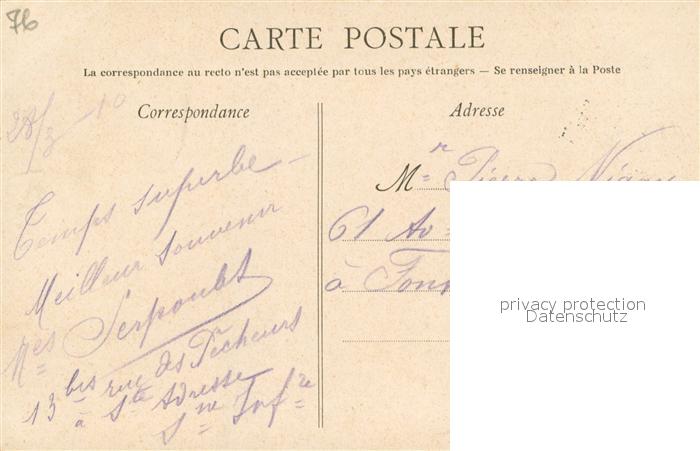 76
CARTE POSTALE
La correspondance au recto n'est pas acceptée par tous les pays étrangers — Se renseigner à la Poste
Correspondance
28/3 - 10
Temps superbe —
Meilleur souvenir
Serpoulet
13 bis rue des Pêcheurs
à Ste Adresse
Sne Infre
Adresse
Mr Pierre
61 Av
à
privacy protection
Datenschutz